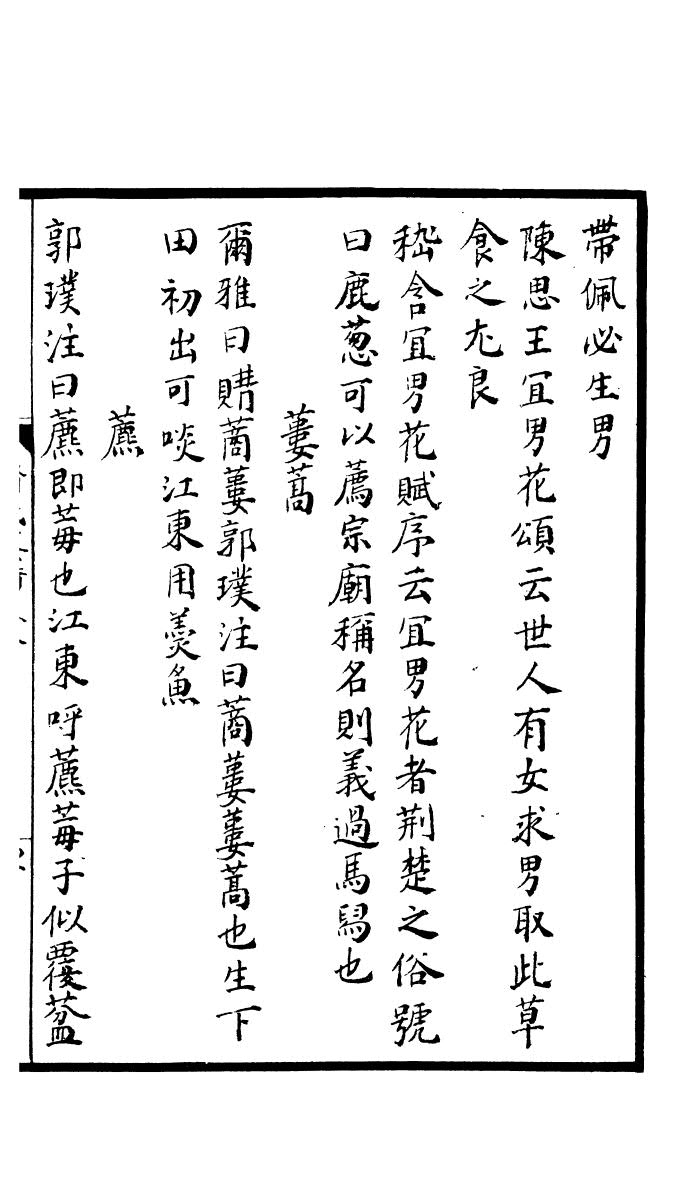 帶佩必生男
陳思王宜男花頌云世人有女求男取此草
食之尤良
嵇含宜男花賦序云宜男花者荆楚之俗號
曰鹿葱可以薦宗廟稱名則義過馬舄也
蔞蒿
爾雅曰購蔏蔞郭璞注曰蔏蔞蔞蒿也生下
田初出可啖江東用羮魚
藨
郭璞注曰藨即莓也江東呼藨莓子似覆葢